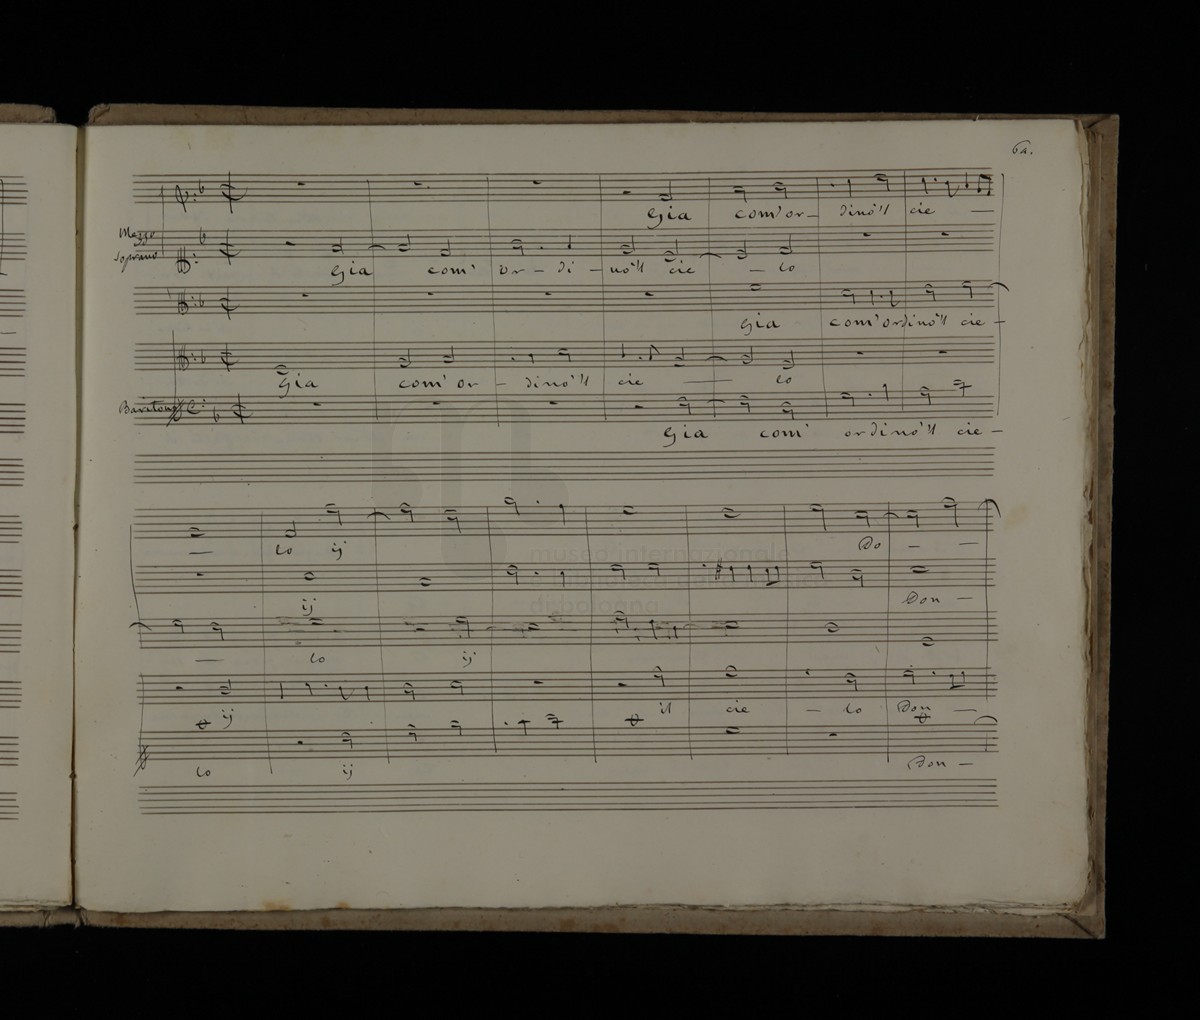 62.
Gia com'or– dinò'll cie —
Mezzo
Soprano
Gia com' or – di – nò'll cie – lo
Gia com'ordinò'll cie –
Gia com' or – dinò'll cie — lo
Baritono
Gia com' ordinò'll cie –
— lo ij Do – —
ij Don –
— lo ij
ij il cie – lo Don —
lo ij Don –
museo internazionale
e biblioteca della musica
di bologna